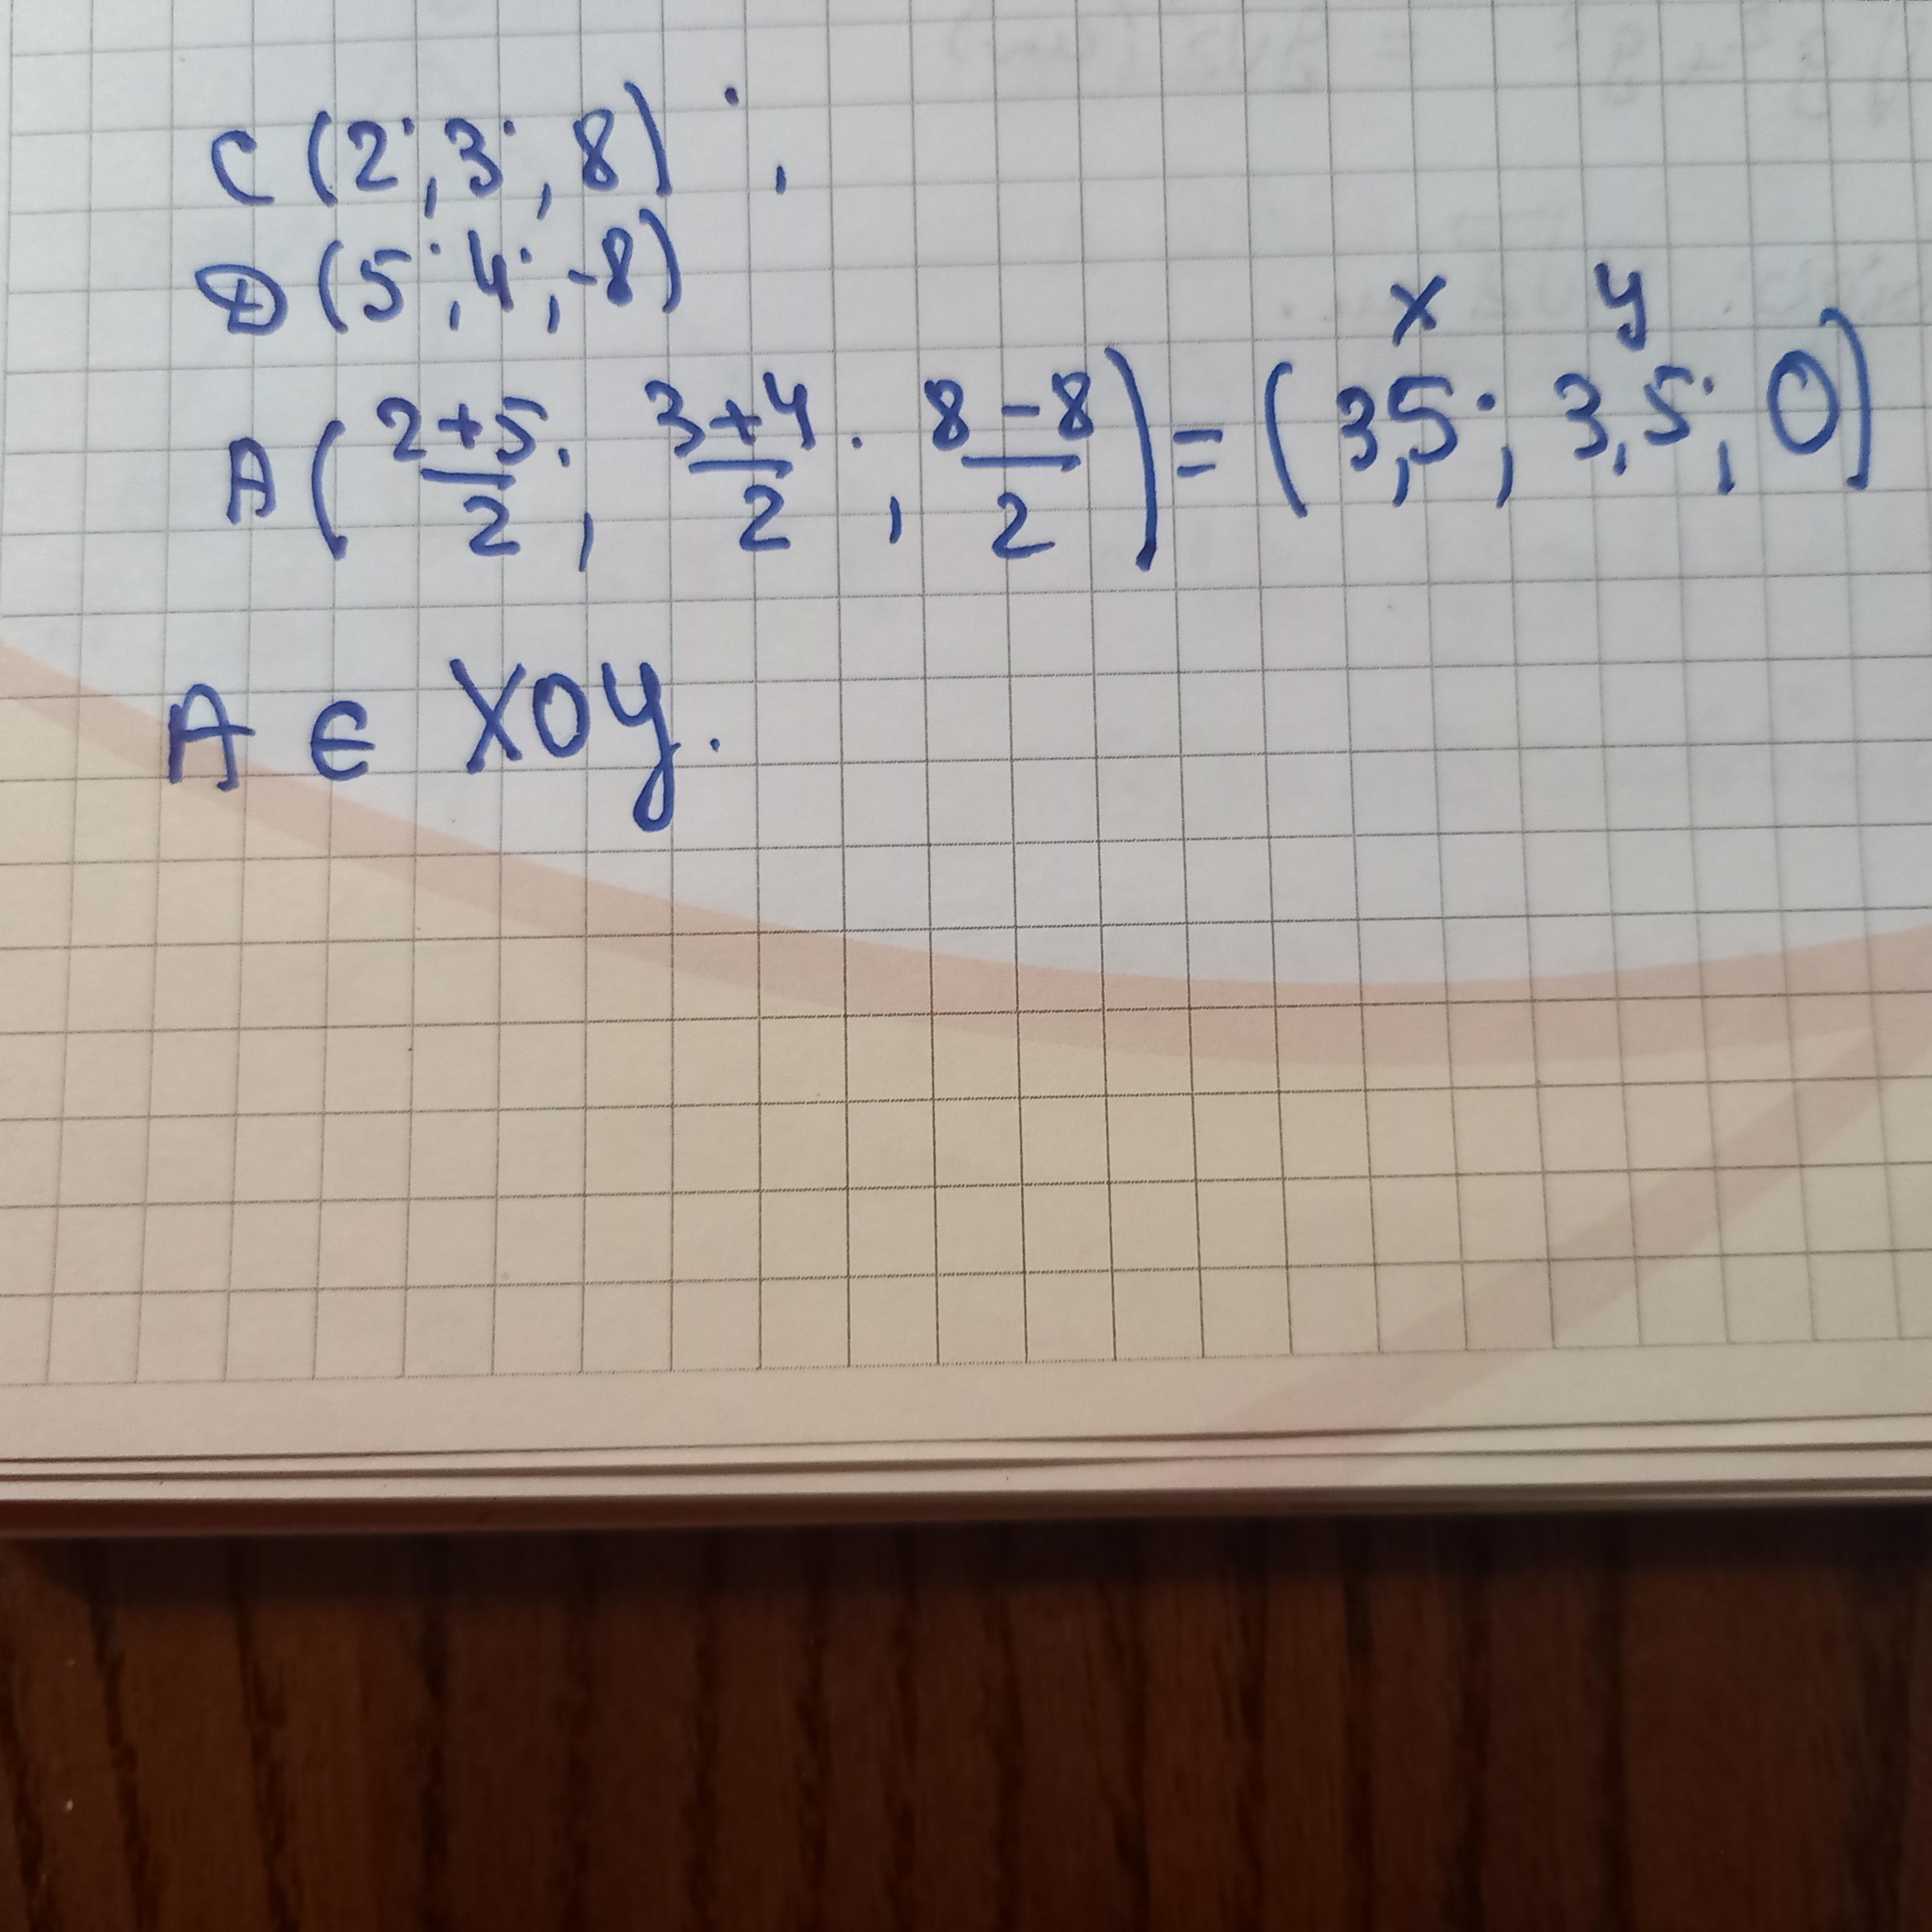 C (2; 3; 8) ;
D (5; 4; -8)
x y
A ( (2+5)/2 ; (3+4)/2 ; (8-8)/2 ) = ( 3,5; 3,5; 0 )
A ∈ XOY.